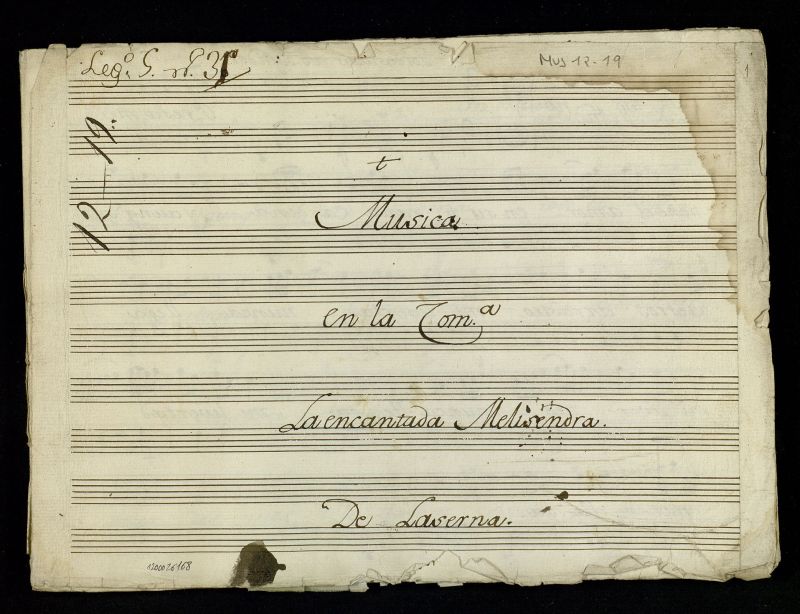 Leg.º 5. nº. 31
Mus 12-19
1
12-19.
t
Musica.
en la Com.ª
La encantada Melisendra.
De Laserna.
1200026168